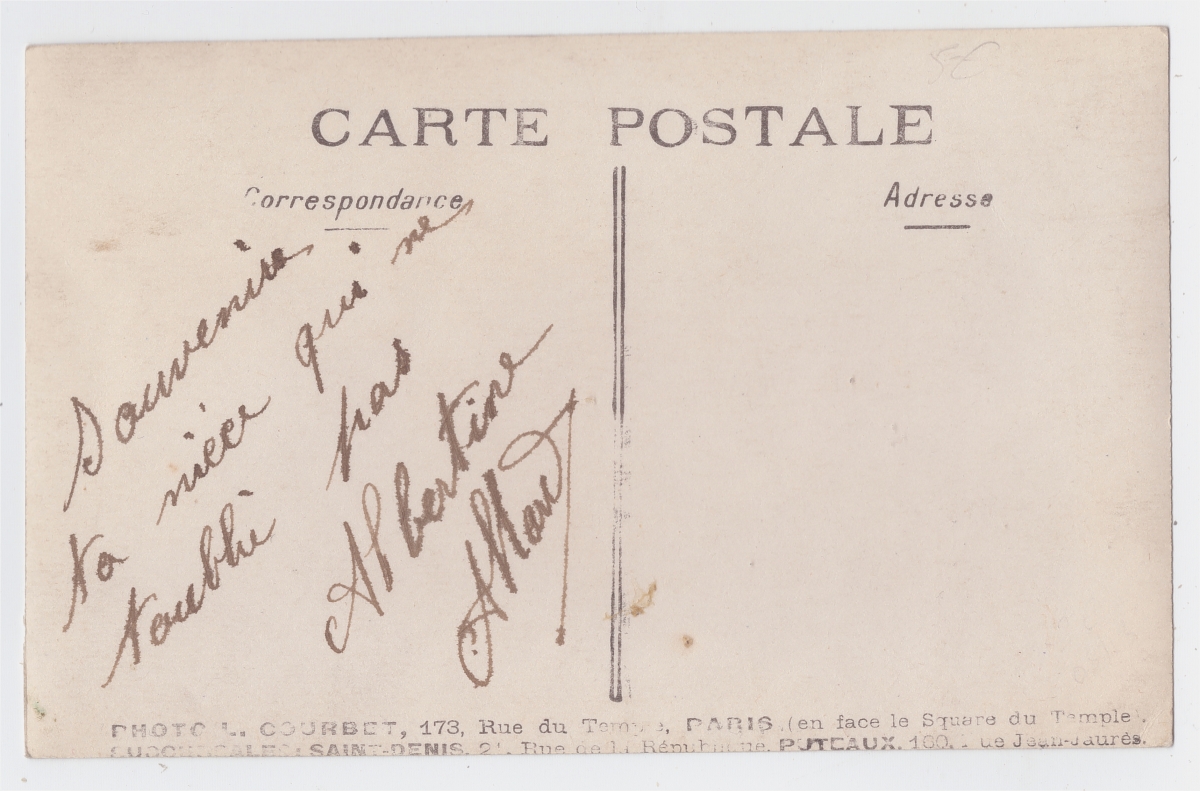 5€
CARTE POSTALE
Correspondance
Adresse
Souvenire
ta niece qui ne
toublie pas
Albertine
PHOTO L. COURBET, 173, Rue du Temple, PARIS (en face le Square du Temple).
SUCCURSALES: SAINT-DENIS, Rue de la République. PUTEAUX, 160, Rue Jean-Jaurès.